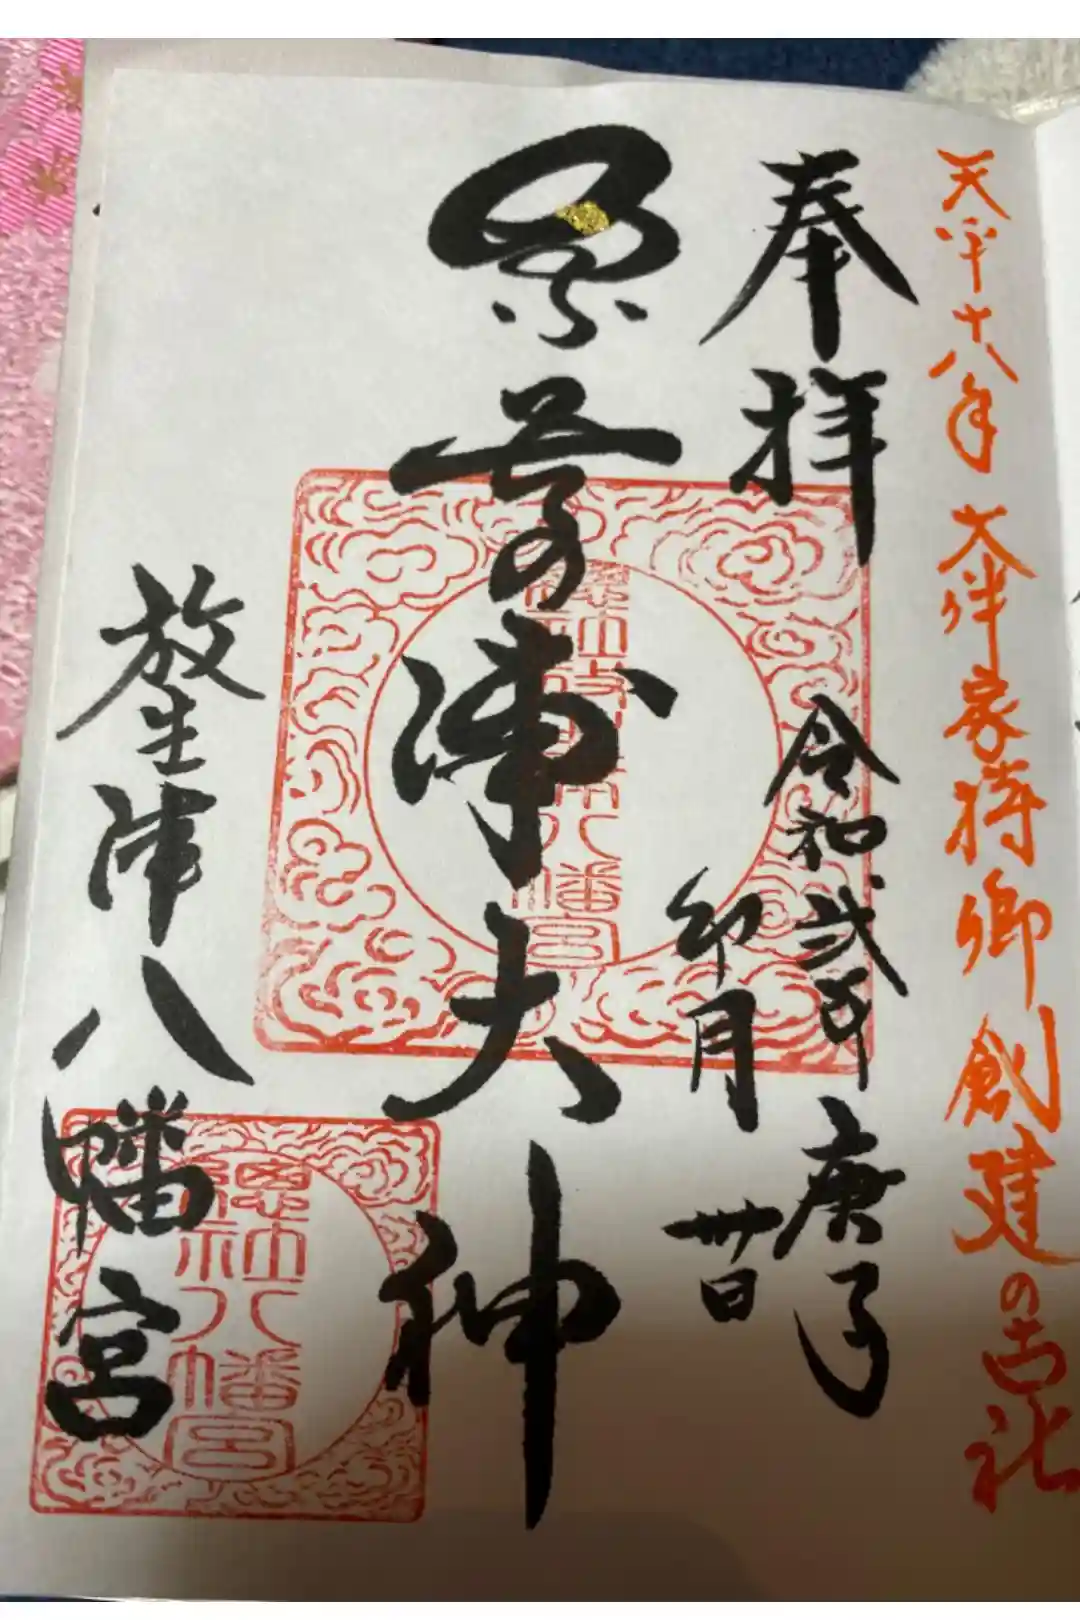 天平十八年 大伴家持卿創建の古社
奉拝
令和弐年 庚子
卯月 卅日
奈呉の浦大神
放生津八幡宮
總社放生津八幡宮
總社八幡宮